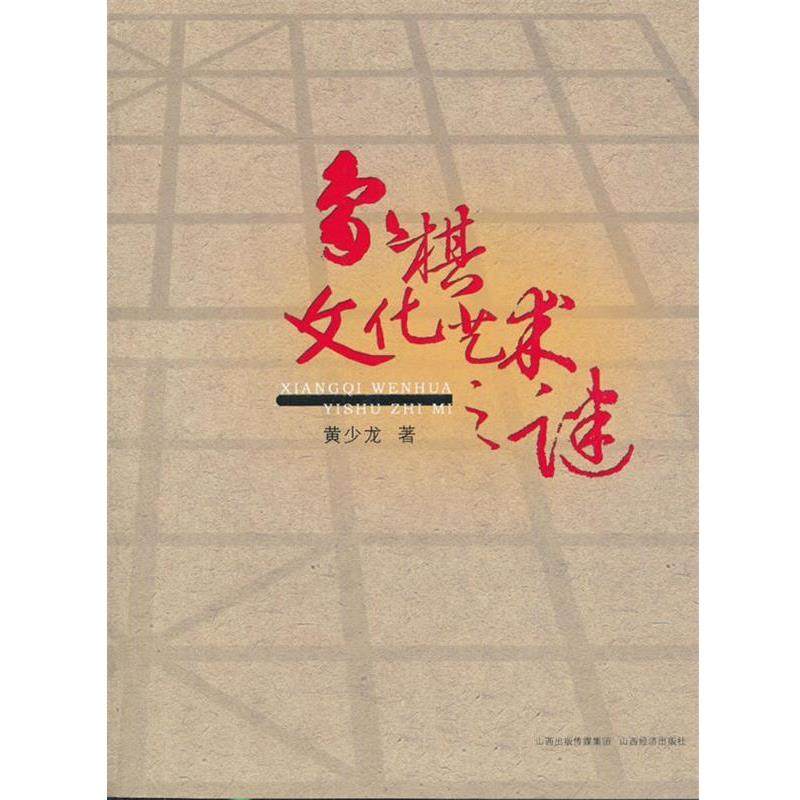 象棋
文化艺术
之谜
XIANGQI WENHUA
YISHU ZHI MI
黄少龙 著
山西出版传媒集团 山西经济出版社